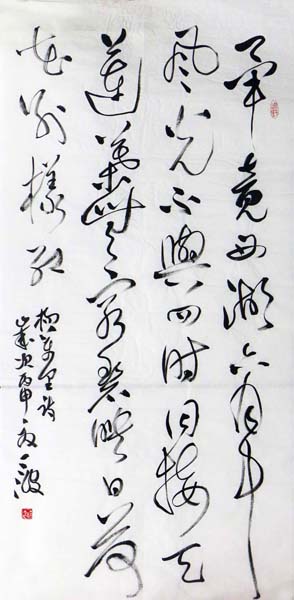 畢竟西湖六月中
风光不與四时同接天
蓮葉無窮碧映日荷
花别樣红
楊万里詩
歲次丙申 波